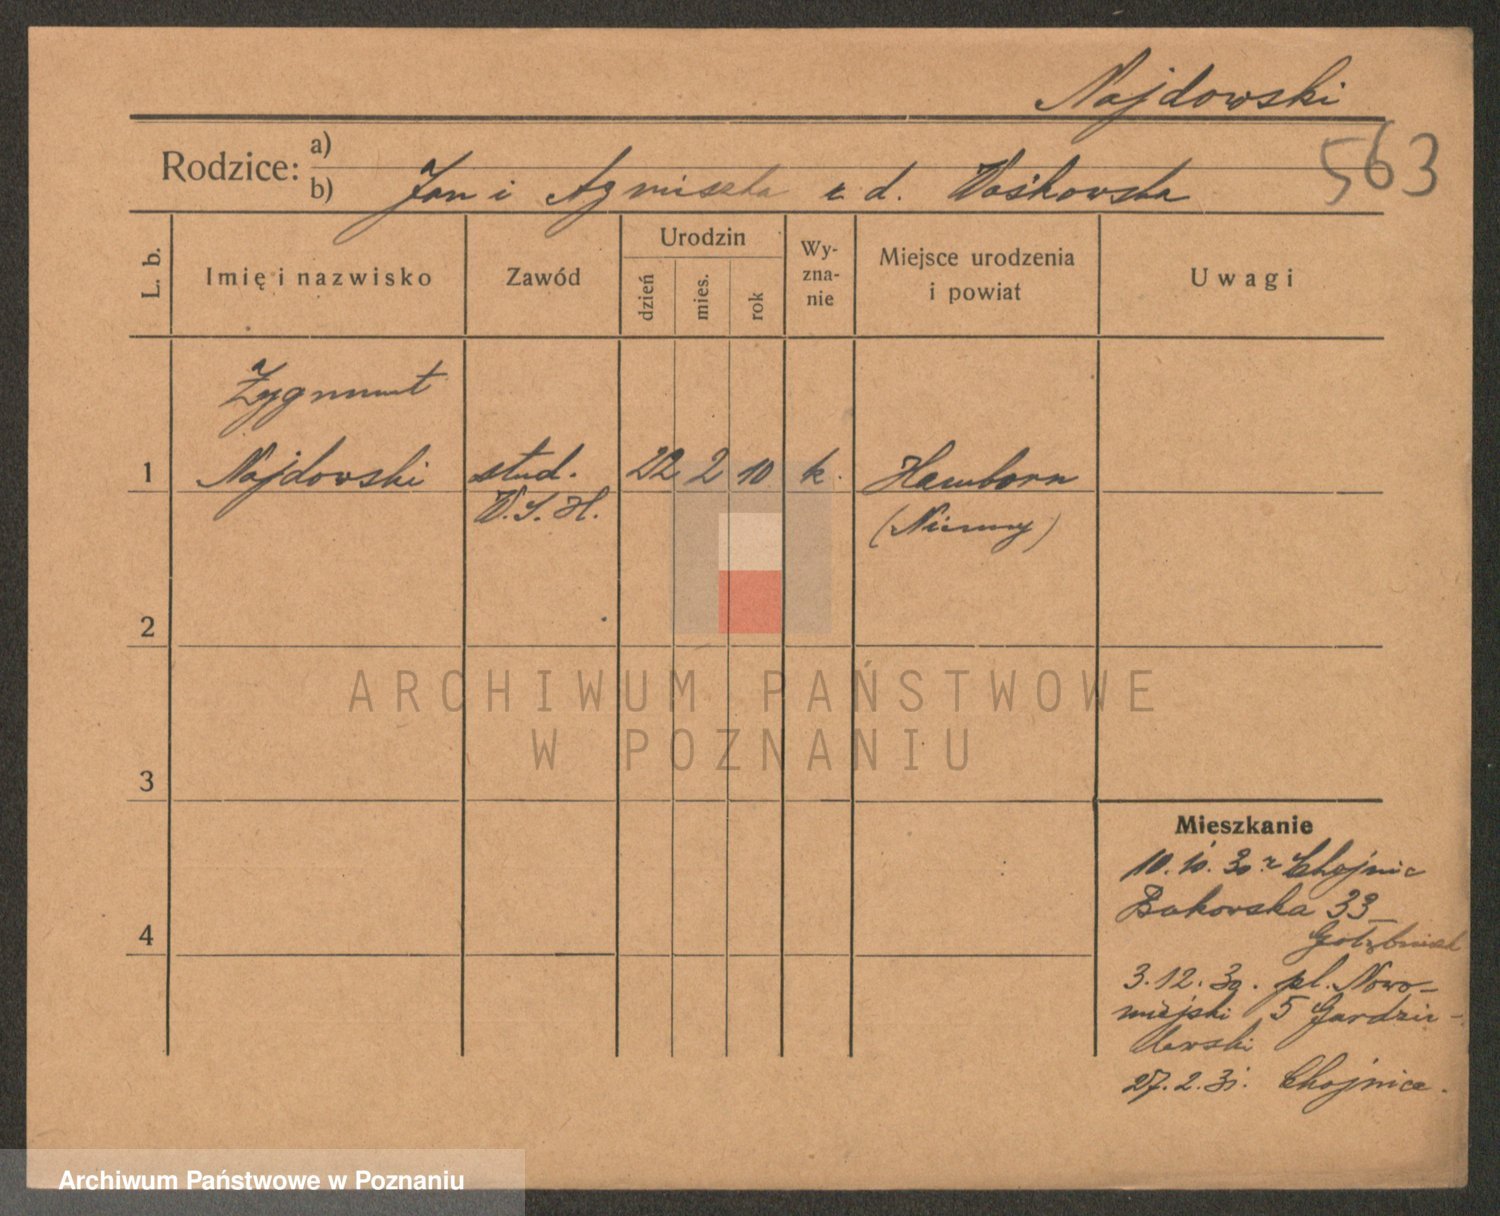 Najdowski
563
Rodzice: a)
b) Jan i Agniszka z d. Waśkowska
L. b.
Imię i nazwisko
Zawód
Urodzin
dzień
mies.
rok
Wy-
zna-
nie
Miejsce urodzenia
i powiat
Uwagi
Zygmunt
1 Najdowski stud. 22 2 10 k. Hamborn
W. S. H. (Niemcy)
2
ARCHIWUM PAŃSTWOWE
W POZNANIU
3
Mieszkanie
10. 10. 30. z Chojnic
Bukowska 33
4
3. 12. 30. pl. Nowo-
miejski 5 Gardzie-
lewski
27. 2. 31. Chojnice.
Archiwum Państwowe w Poznaniu